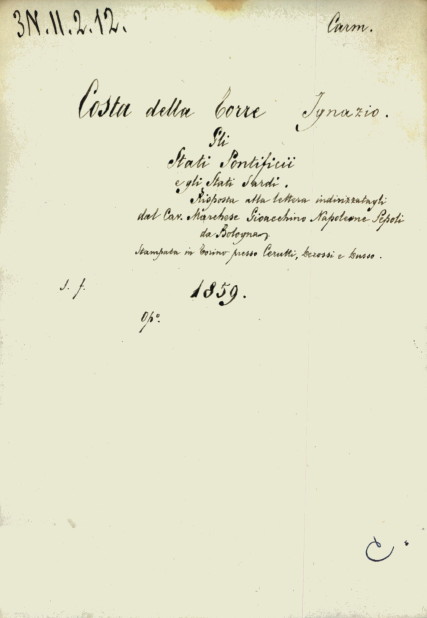 3N.11.2.12.
Carm.
Costa della Torre Ignazio.
Gli
Stati Pontificii
e gli Stati Sardi.
Risposta alla lettera indirizzatagli
dal Cav. Marchese Gioacchino Napoleone Pepoli
da Bologna
Stampata in Torino presso Cerutti, Derossi e Dusso.
s. f.
1859.
Opº.